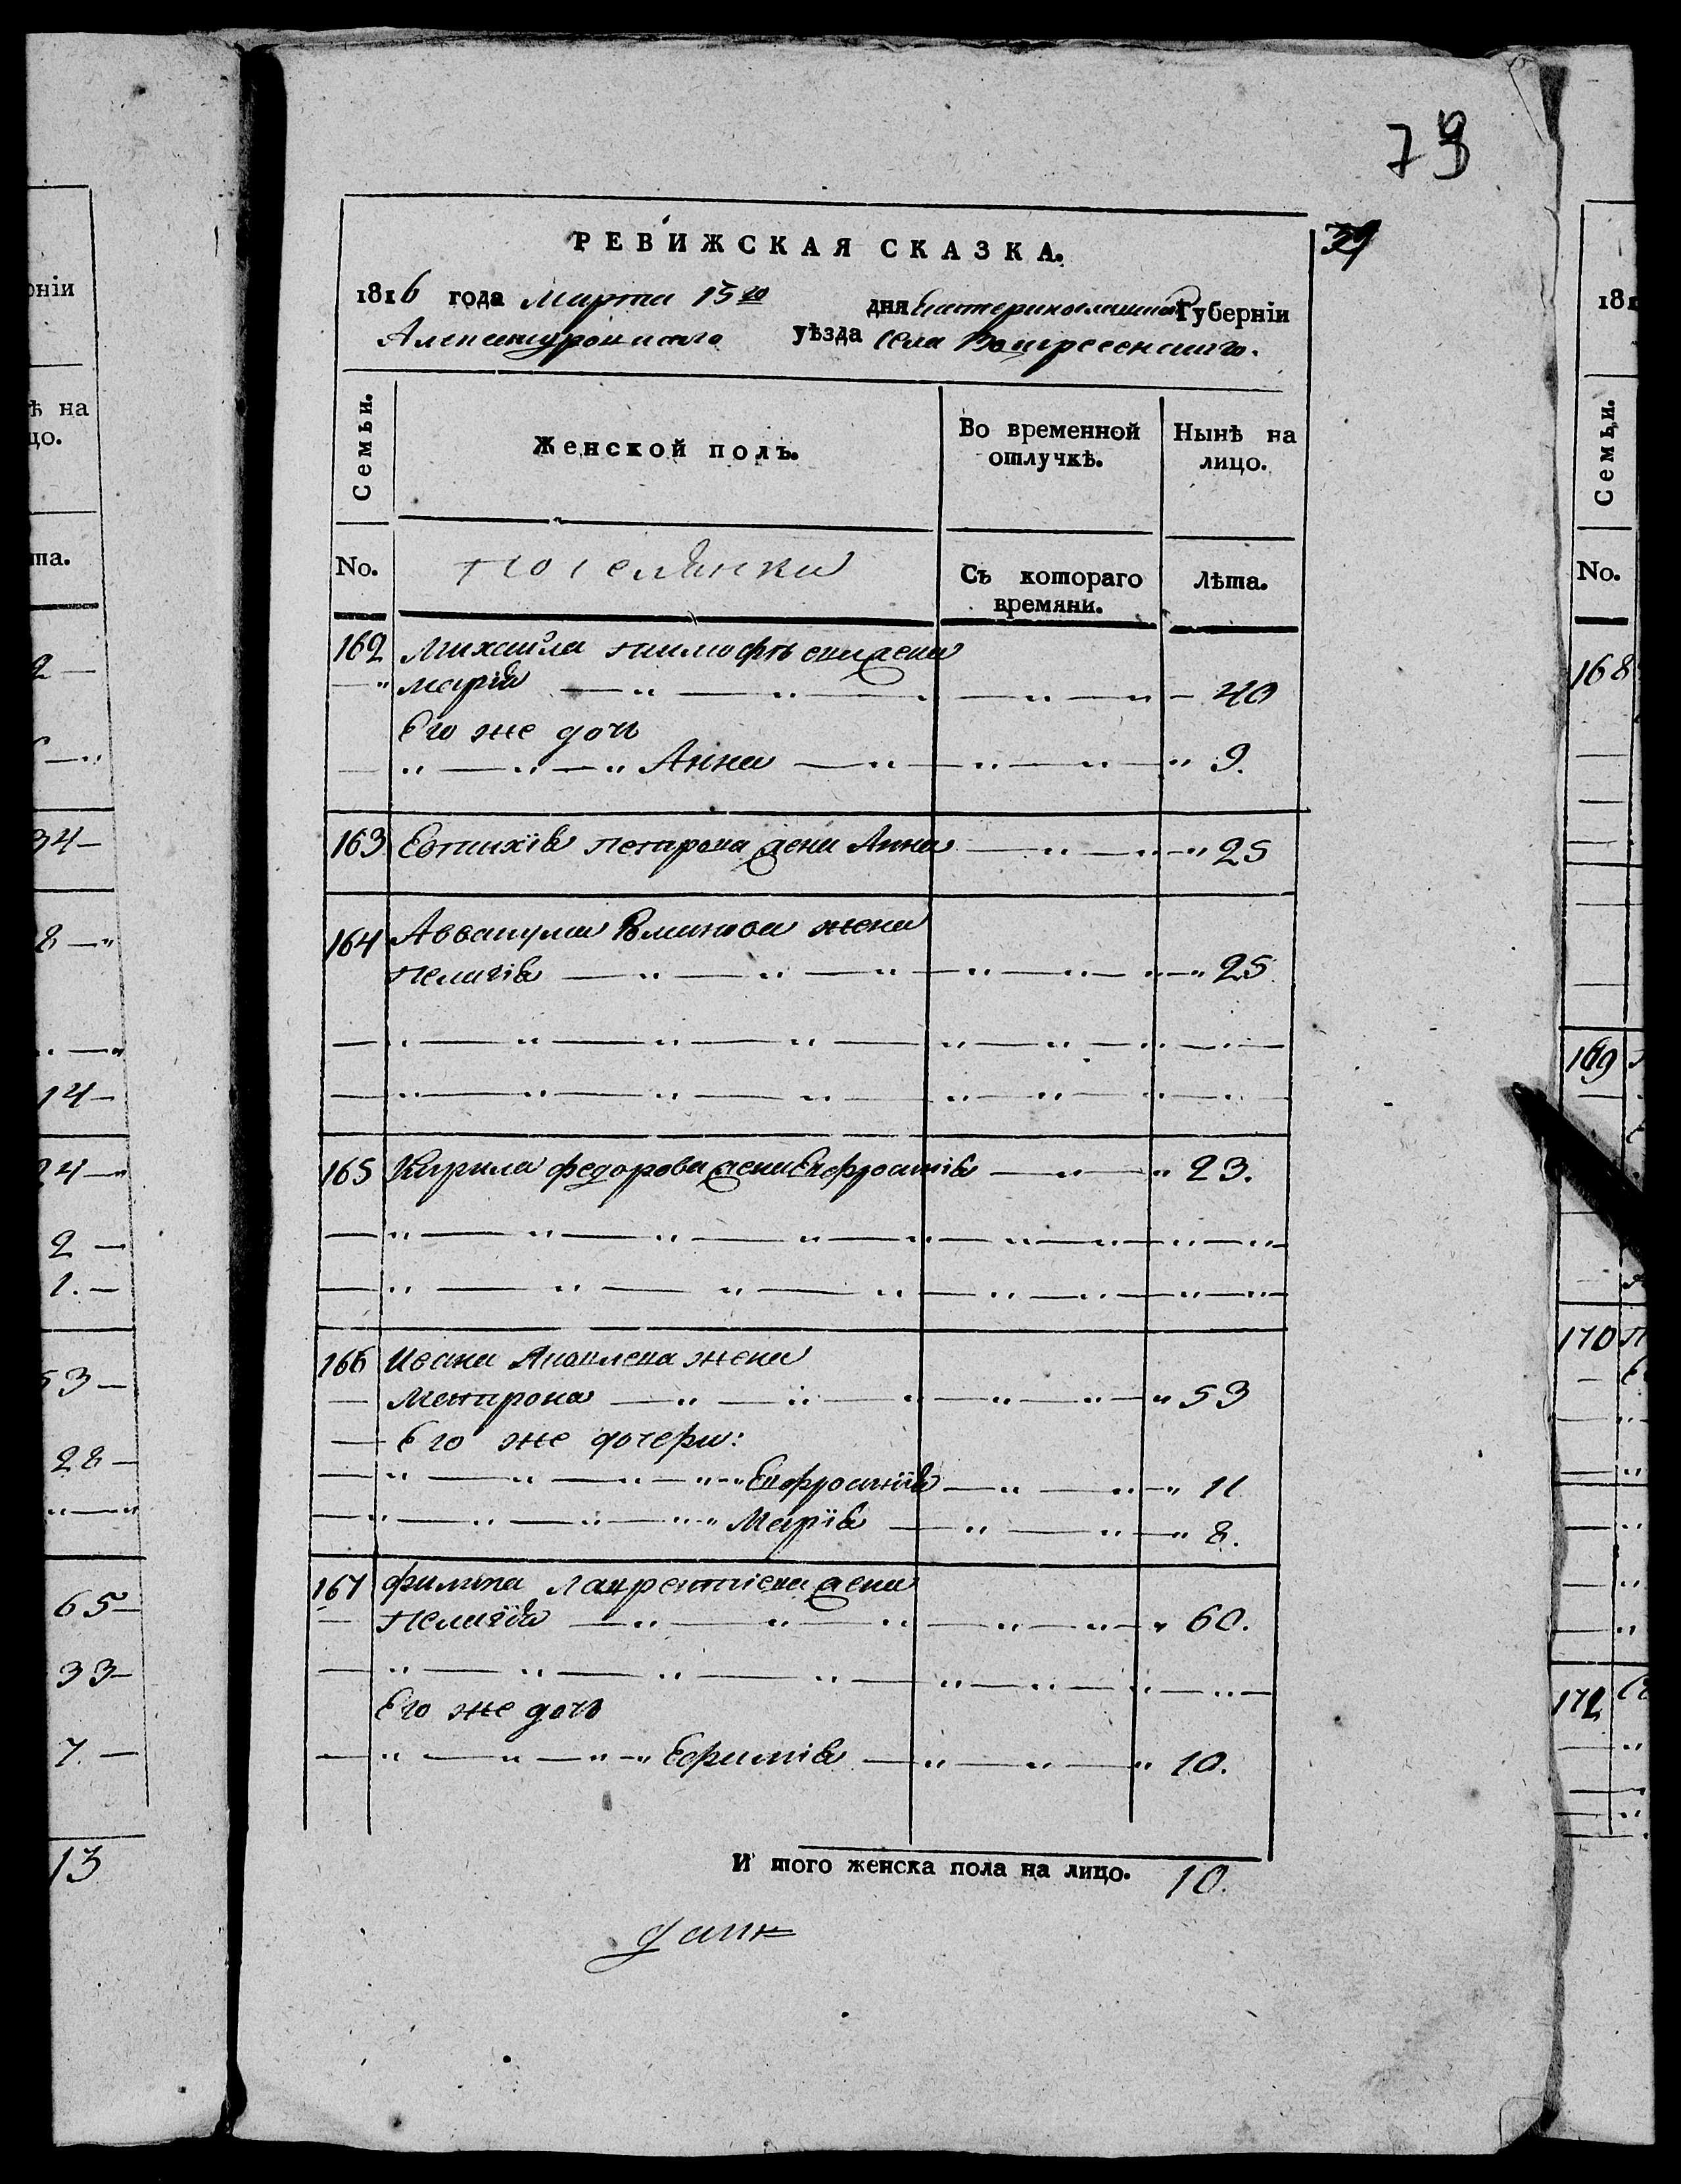 73
39
РЕВИЖСКАЯ СКАЗКА.
1816 года Марта 15го дня Екатеринославской Губерніи
Александровскаго уѣзда Села Вознесенскаго.
Семьи. Женской полъ. Во временной отлучкѣ. Нынѣ на лицо.
No. Поселянки Съ котораго времяни. Лѣта.
162 Михайла Тимофѣева жена
Марія 40
Его же дочь
Анна 9.
163 Евтихія Петрова жена Анна 25
164 Аввакума жена
Пелагія 25
165 Кирила Федорова жена Евфросинія 23.
166 Ивана Яковлева жена
Матрона 53
Его же дочери:
Евфросинія 11
Марія 8.
167 Филипа Лаврентіева жена
Пелагія 60.
Его же дочь
Ефимія 10.
И того женска пола на лицо. 10.
ніи
ѣ на
цо.
та.
34
8
14
24
2
1.
53
28
65
33
7
13
181
Семьи.
No.
168
169
170
172